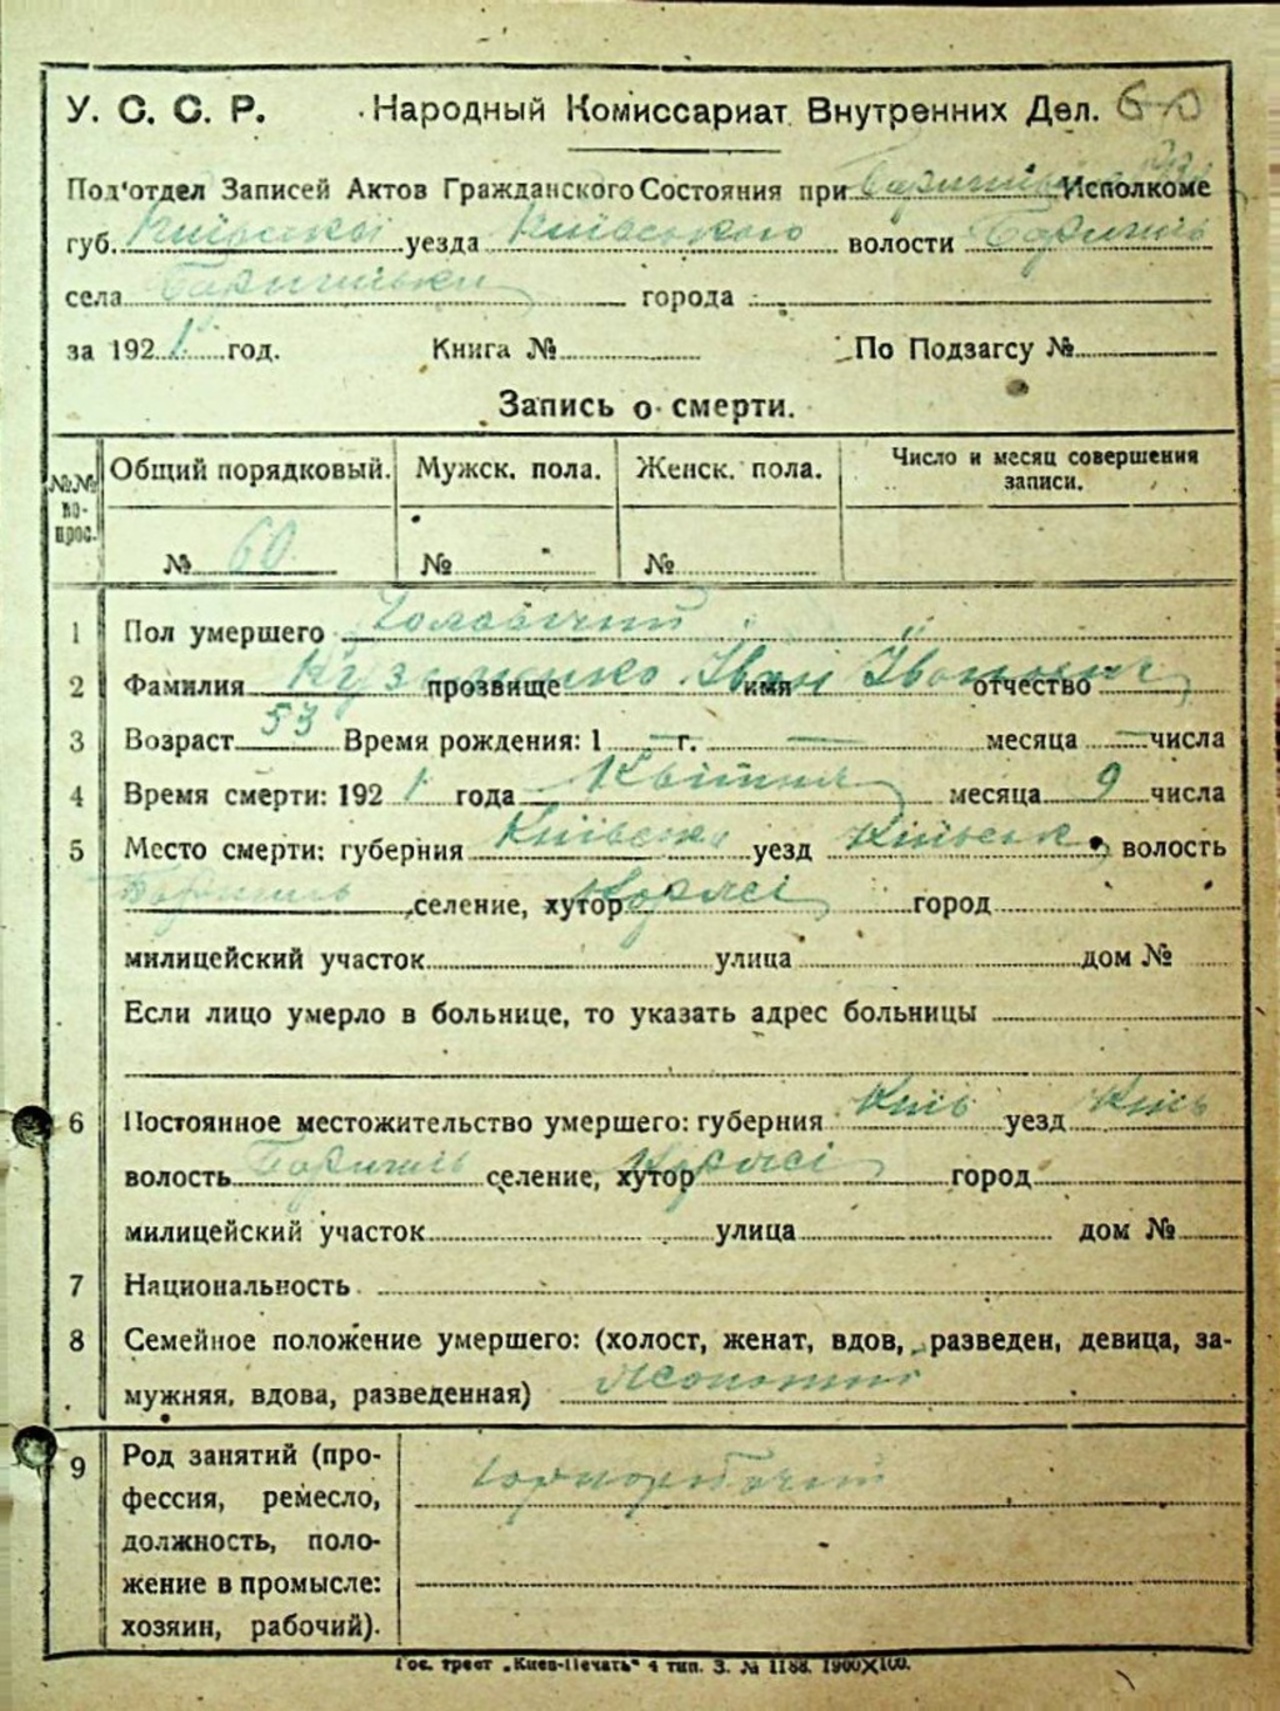 У. С. С. Р. Народный Комиссариат Внутренних Дел. 60
Под'отдел Записей Актов Гражданского Состояния при Исполкоме
губ. Київської уезда Київського волости Бориспіль
села города
за 1921 год. Книга № По Подзагсу №
Запись о смерти.
№№ во-прос. Общий порядковый. Мужск. пола. Женск. пола. Число и месяц совершения записи.
№ 60 № №
1 Пол умершего Чоловічий
2 Фамилия Кузьменко прозвище Іван имя Іванович отчество
3 Возраст 53 Время рождения: 1 — г. — месяца — числа
4 Время смерти: 1921 года Квітня месяца 9 числа
5 Место смерти: губерния Київська уезд Київськ. волость
Бориспіль селение, хутор город
милицейский участок улица дом №
Если лицо умерло в больнице, то указать адрес больницы
6 Постоянное местожительство умершего: губерния Київ уезд Київ
волость Бориспіль селение, хутор город
милицейский участок улица дом №
7 Национальность
8 Семейное положение умершего: (холост, женат, вдов, разведен, девица, за-
мужняя, вдова, разведенная) Жонатий
9 Род занятий (про-
фессия, ремесло,
должность, поло-
жение в промысле:
хозяин, рабочий).
Чорноробочий
Гос. трест „Киев-Печать" 4 тип. З. № 1188. 1900X100.